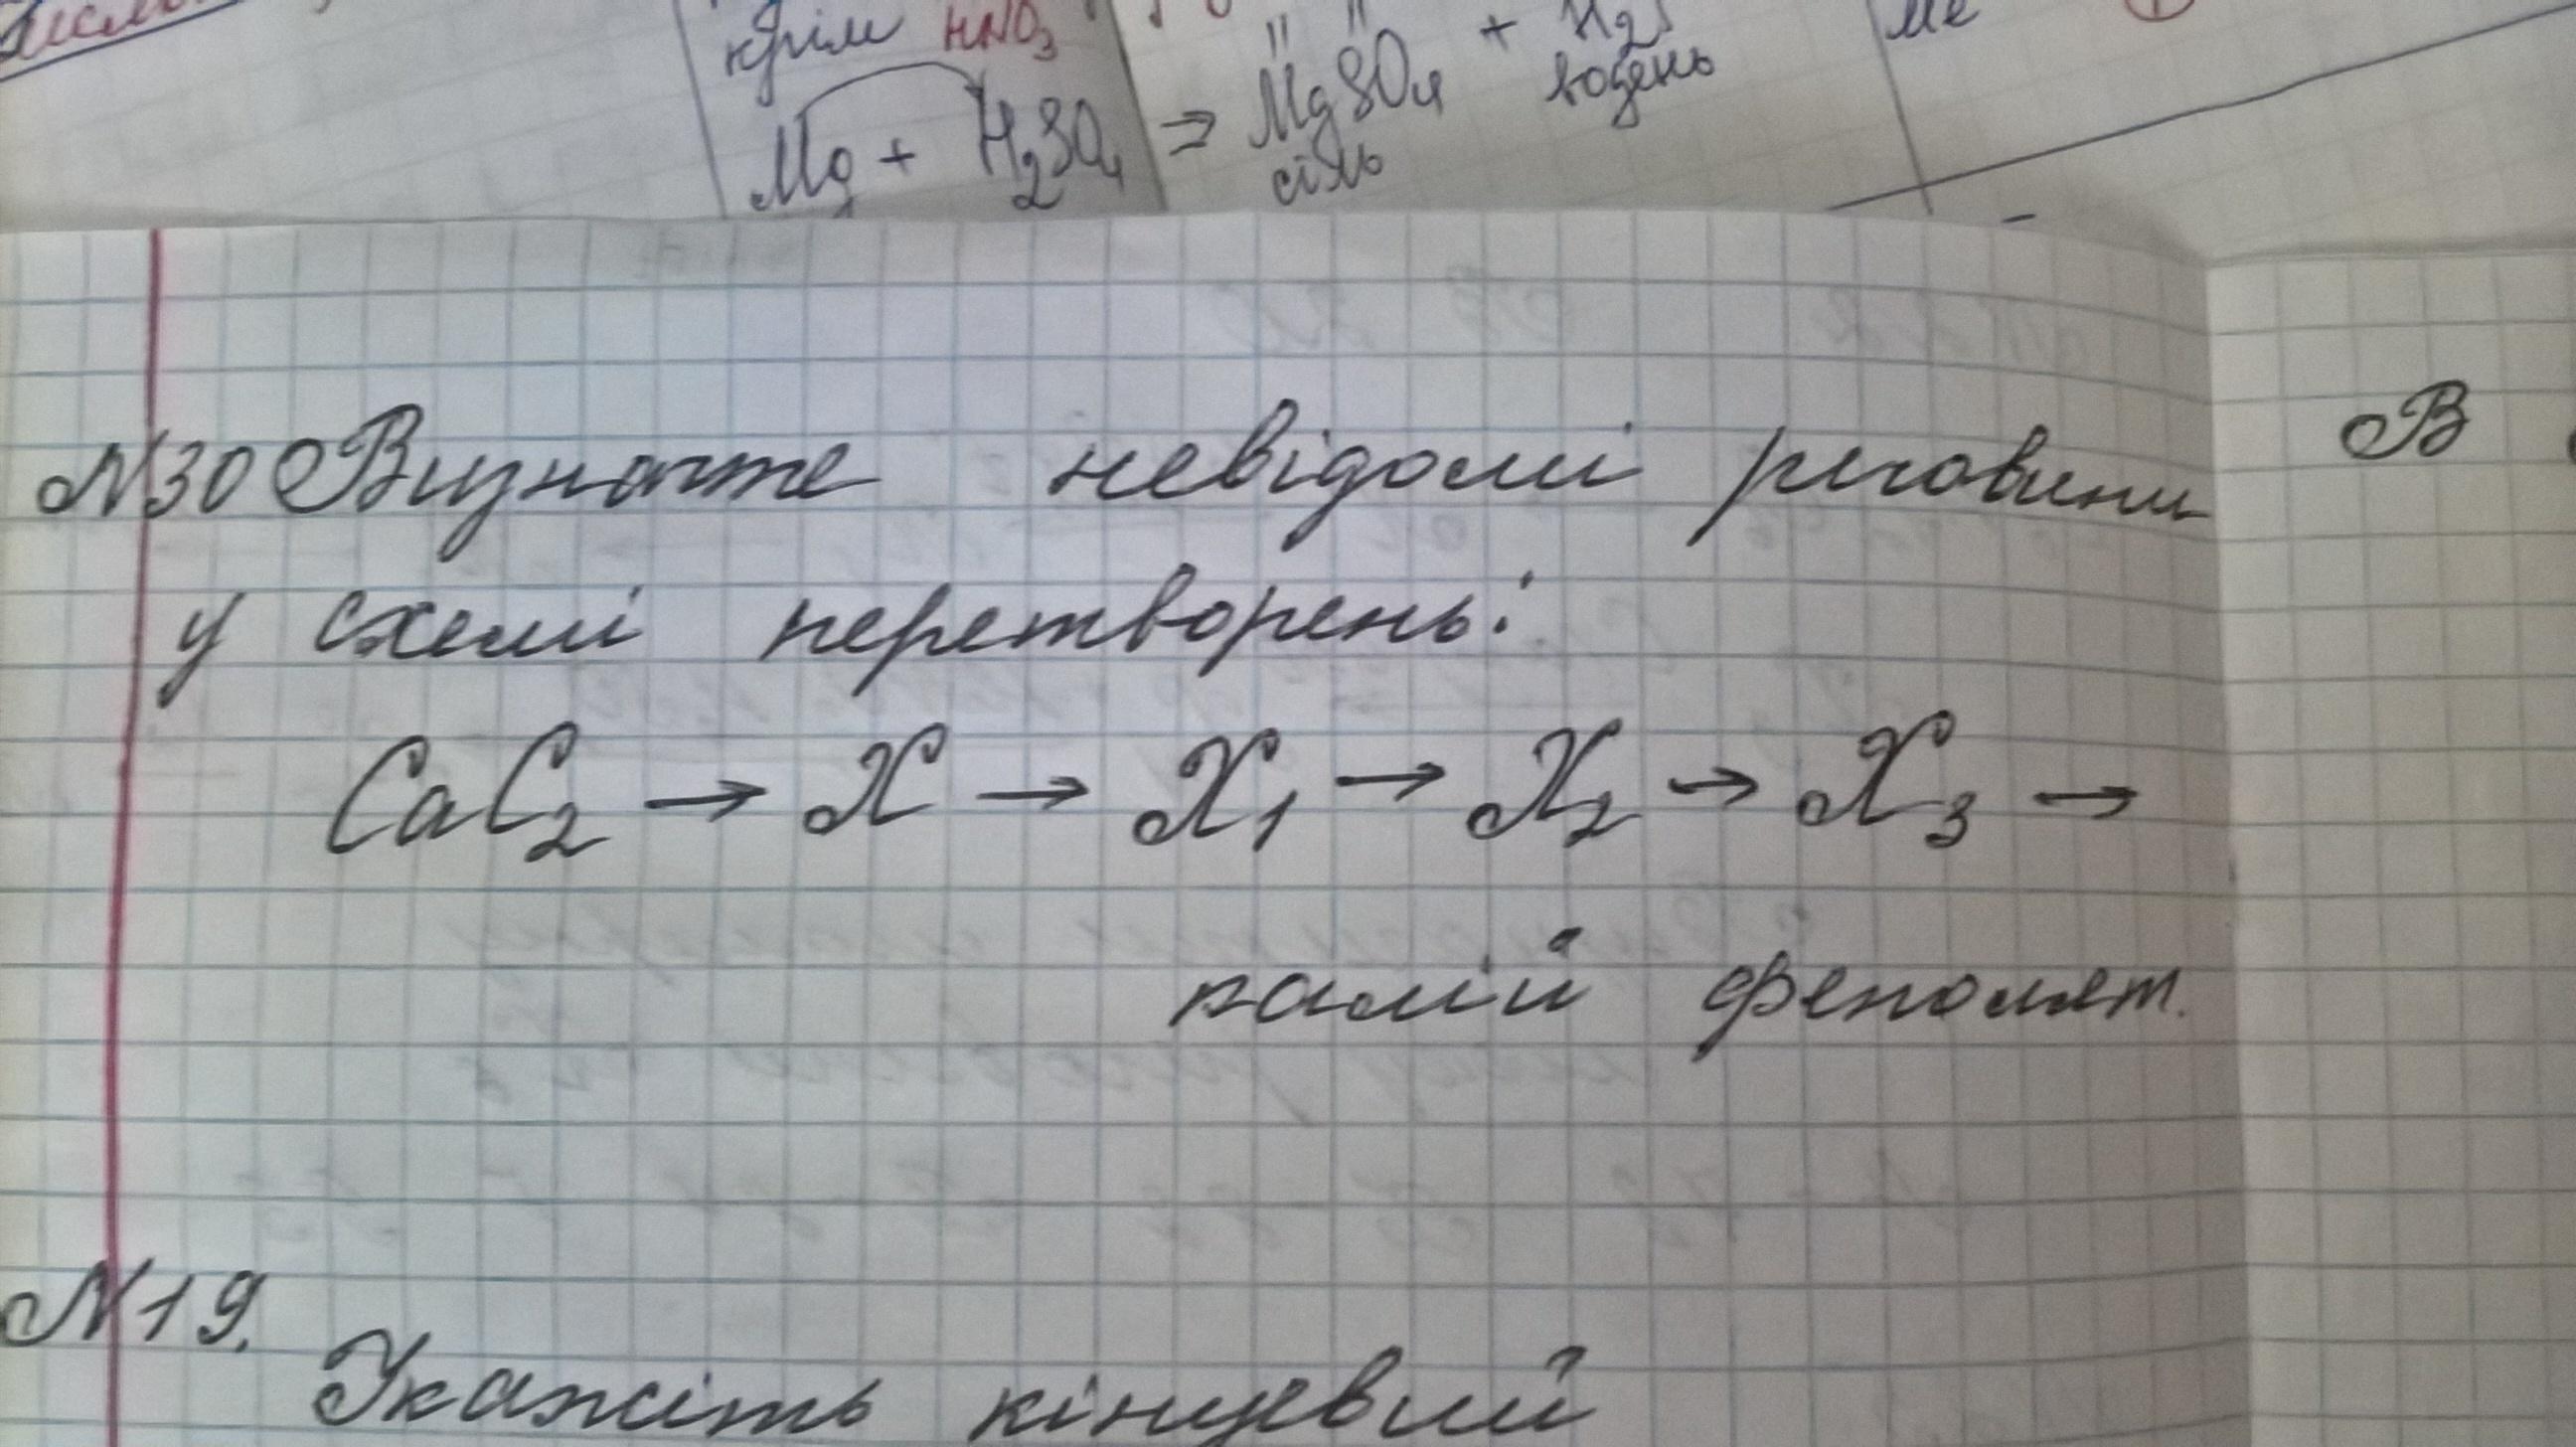 крім HNO₃
Mg + H₂SO₄ ⇒ MgSO₄ + H₂↑
сіль водень
Me
N30 Визначте невідомі речовини
у схемі перетворень:
CaC₂ → X → X₁ → X₂ → X₃ →
калій фенолят.
В
N19.
Укажіть кінцевий